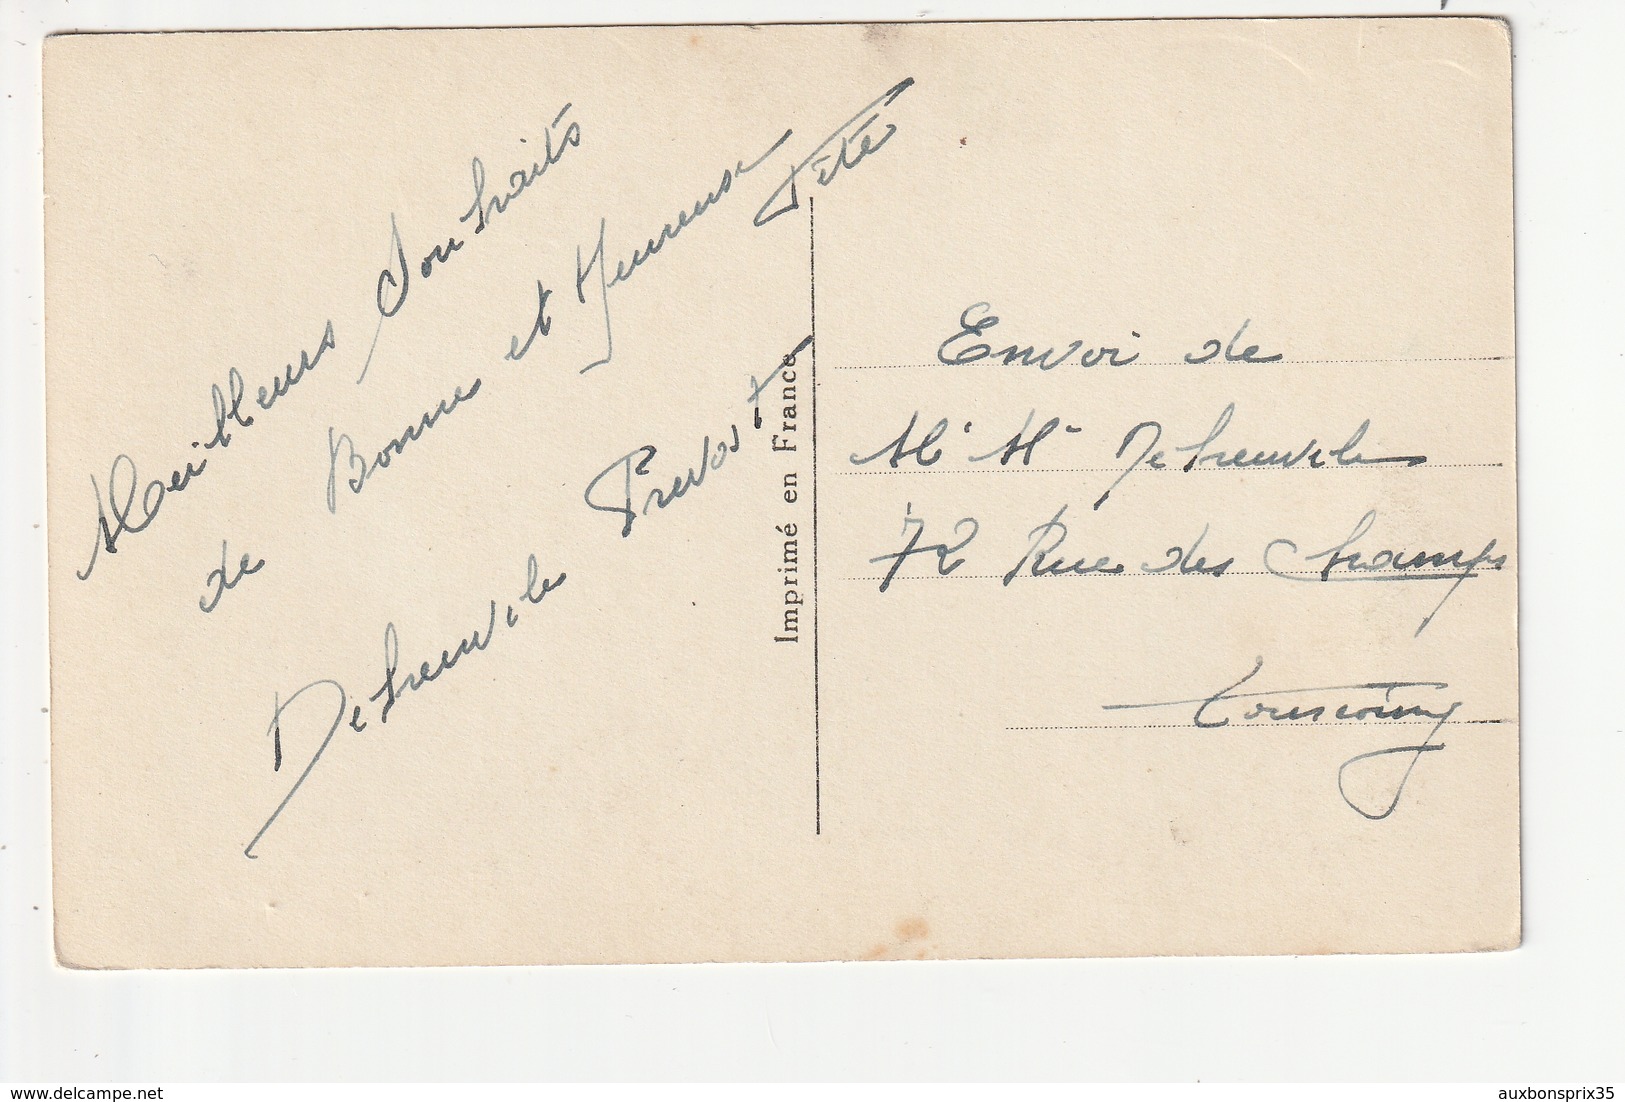 Meilleurs Souhaits
de Bonne et Heureuse Fête
Prevost
Imprimé en France
Envoi de
Mr Me
72 Rue des Champs
Tourcoing
www.delcampe.net
auxbonsprix35